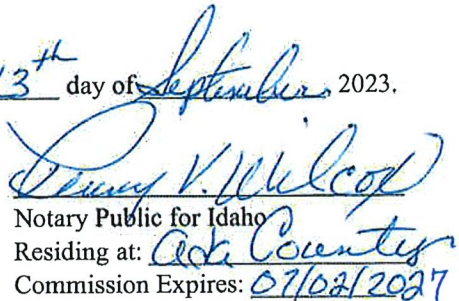 13th day of September, 2023.
Penny V. Wilcox
Notary Public for Idaho
Residing at: Ada County
Commission Expires: 07/02/2027